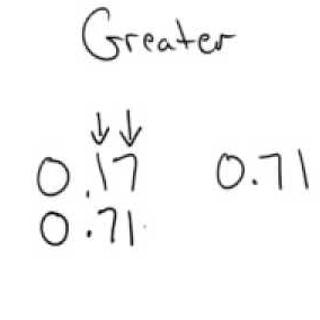 Greater
↓↓
0.17 0.71
0.71